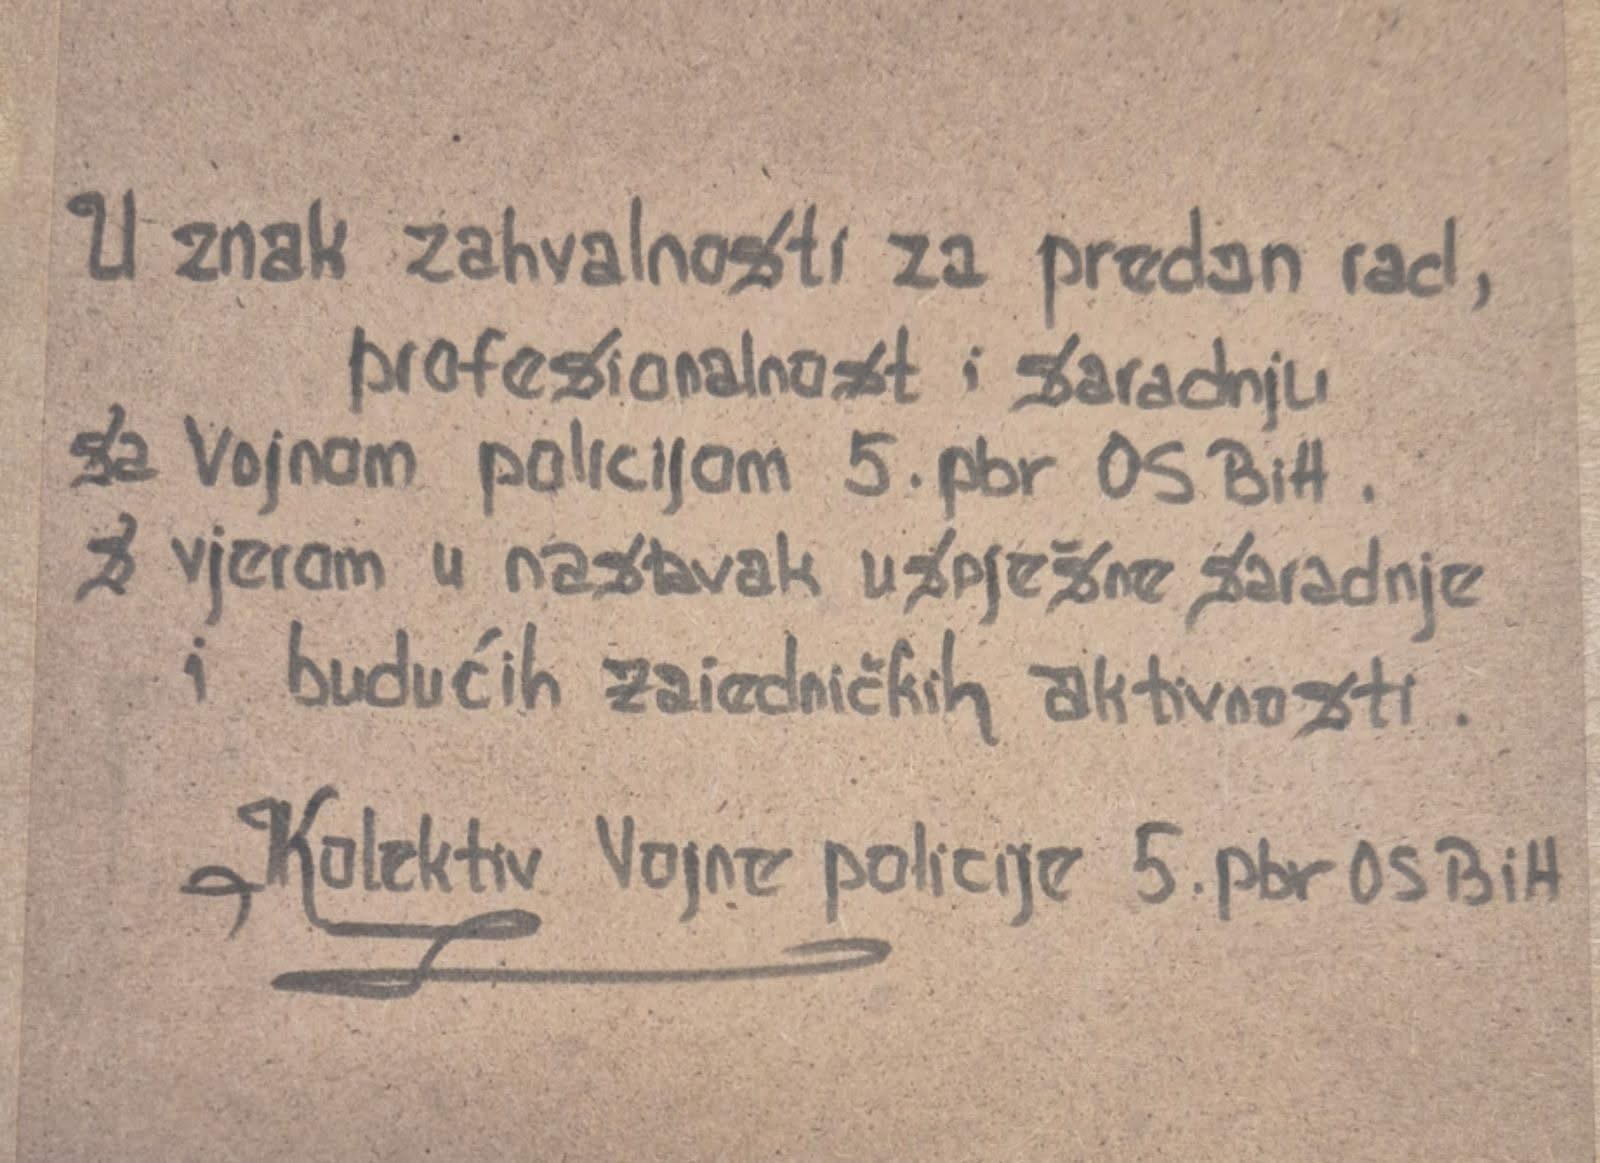 U znak zahvalnosti za predan rad,
profesionalnost i saradnju
sa Vojnom policijom 5. pbr OS BiH.
S vjerom u nastavak uspješne saradnje
i budućih zajedničkih aktivnosti.
Kolektiv Vojne policije 5. pbr OS BiH